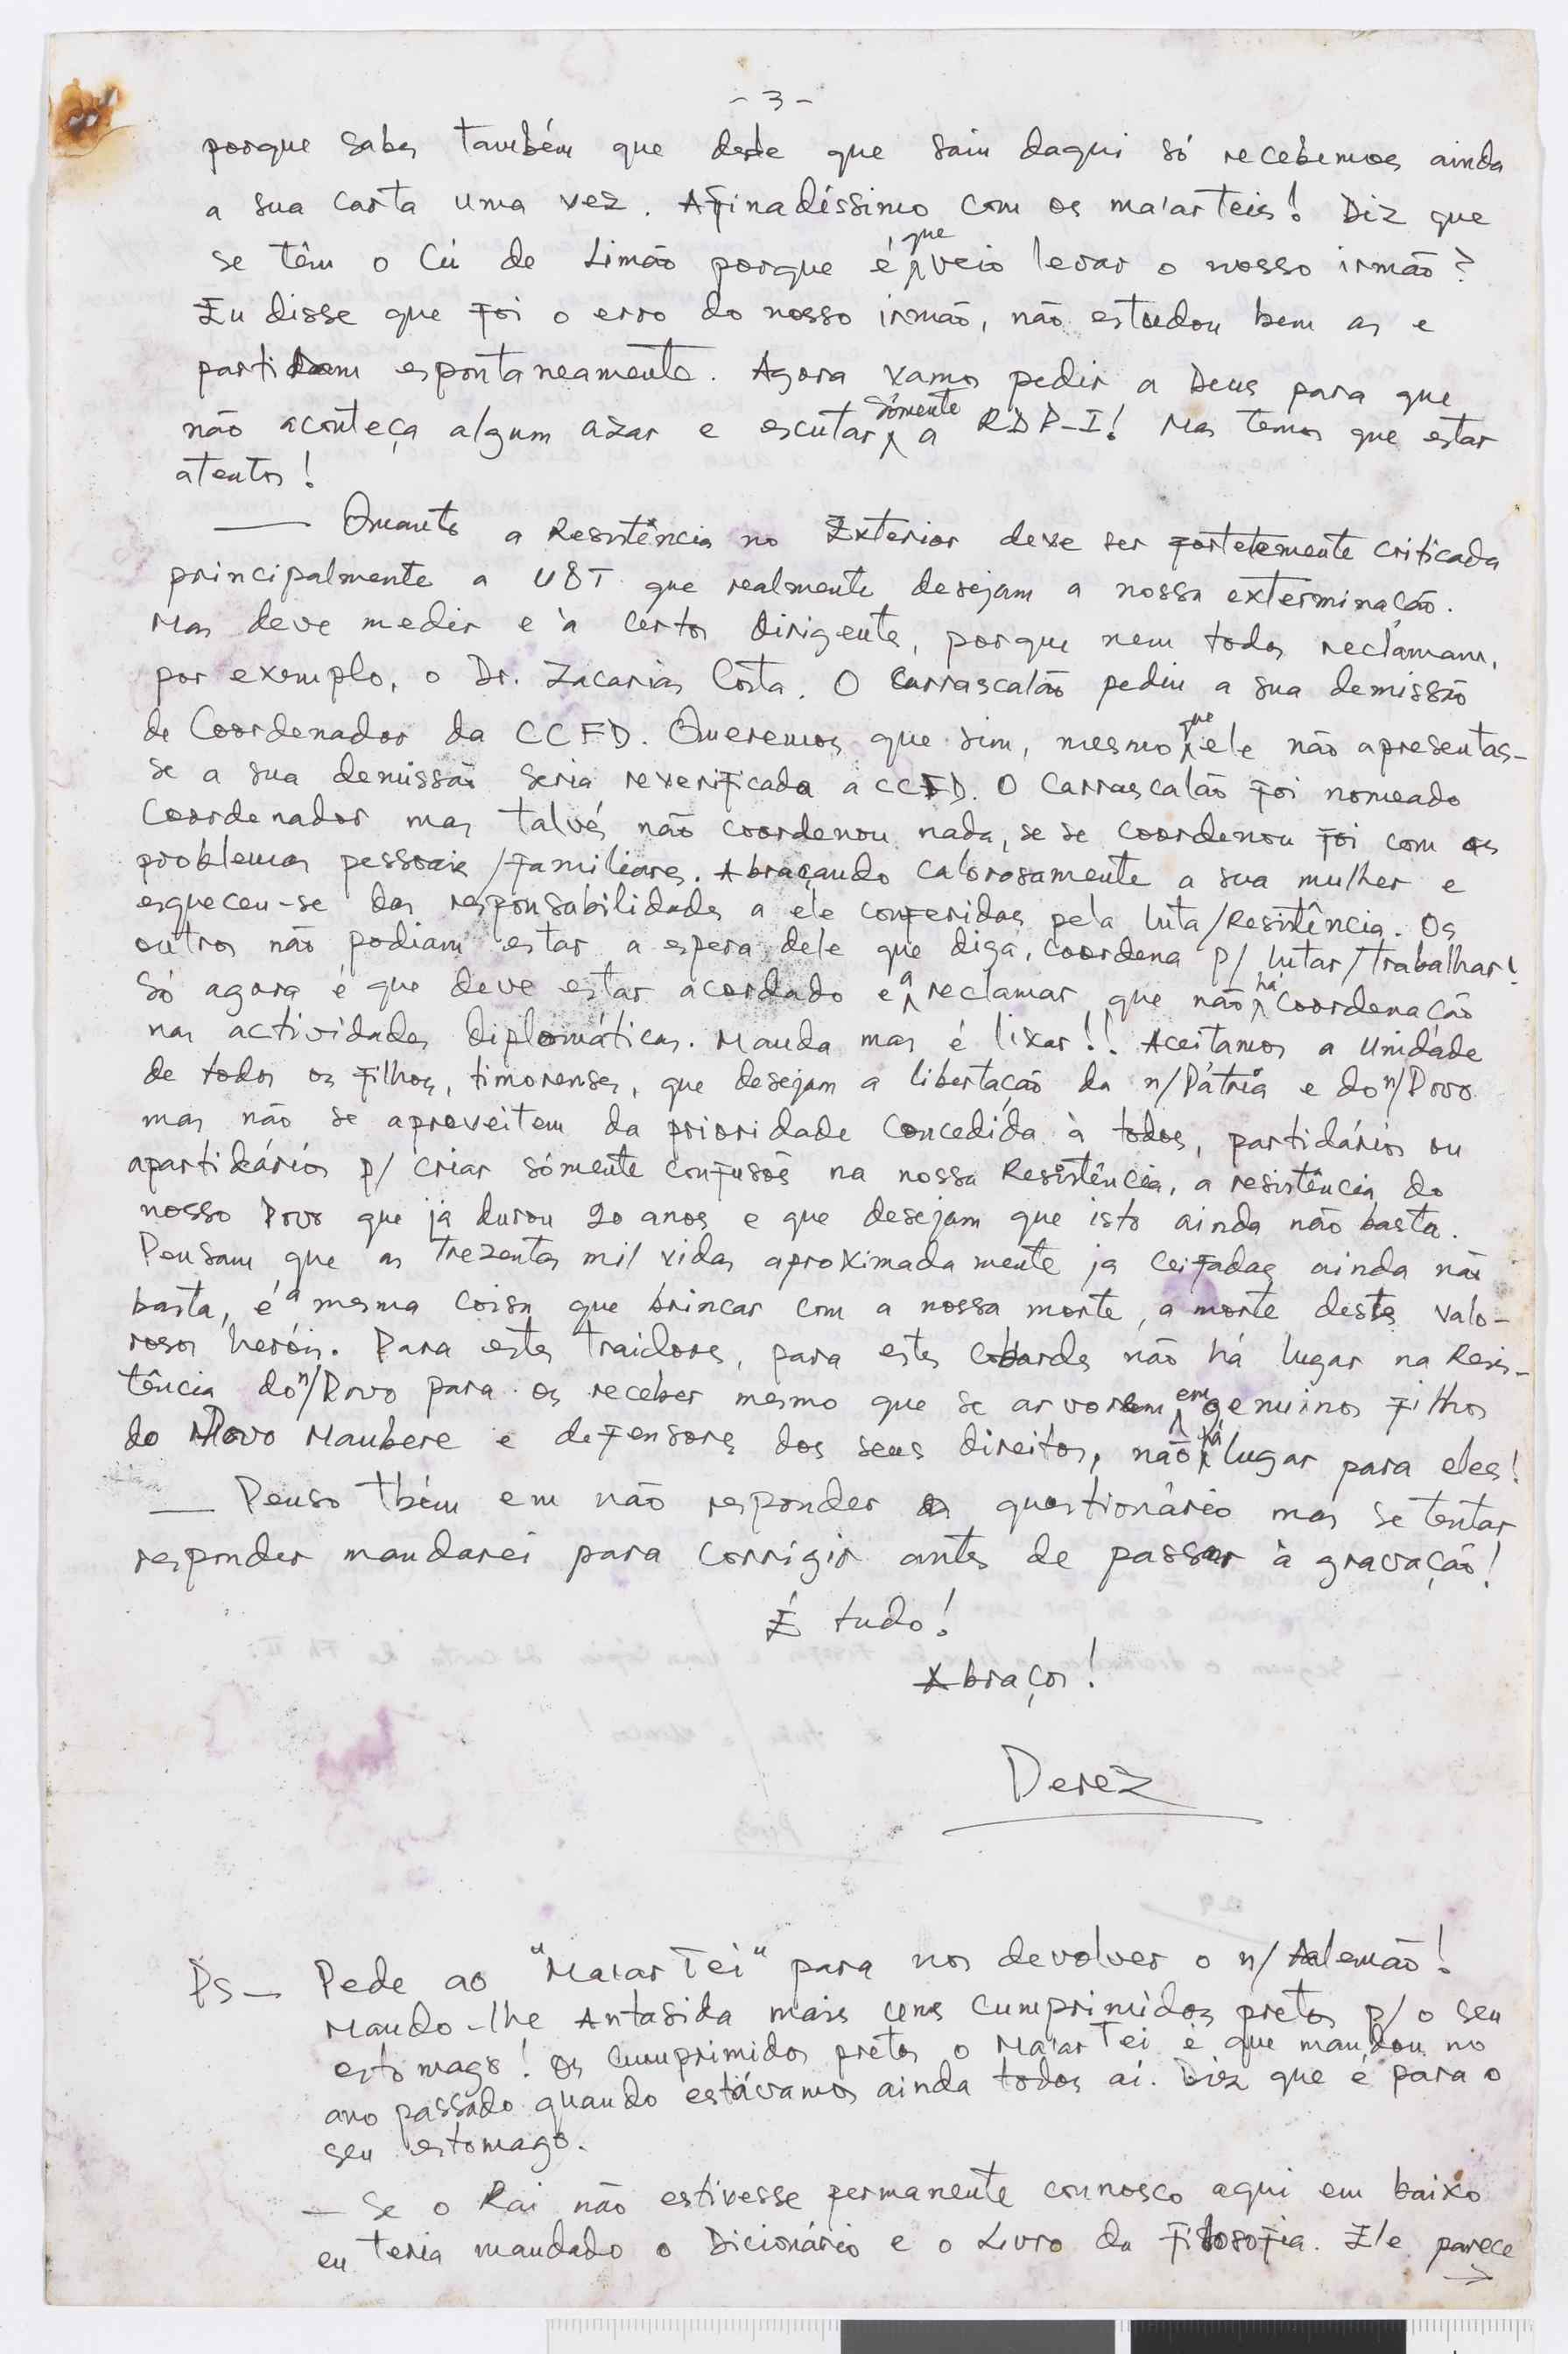 - 3 -
porque sabes também que desde que saiu daqui só recebemos ainda
a sua carta uma vez. Afinadíssimo com os ma'arteis! Diz que
se têm o Cú de Limão porque é que veio levar o nosso irmão?
Eu disse que foi o erro do nosso irmão, não estudou bem as e
espontaneamente. Agora vamos pedir a Deus para que
não aconteça algum azar e escutar sómente a RDP-I! Mas temos que estar
atentos!
— Quanto a Resistência no Exterior deve ser fortetemente criticada
principalmente a UDT que realmente desejam a nossa exterminação.
Mas deve medir e à certos dirigentes, porque nem todos reclamam,
por exemplo, o Dr. Zacarias Costa. O Carrascalão pediu a sua demissão
de Coordenador da CCFD. Queremos que sim, mesmo que ele não apresentas-
se a sua demissão seria reverificada a CCFD. O Carrascalão foi nomeado
Coordenador mas talvés não coordenou nada, se se coordenou foi com os
problemas pessoais/familiares. Abraçando calorosamente a sua mulher e
esqueceu-se das responsabilidades a ele conferidas pela luta/Resistência. Os
outros não podiam estar a espera dele que diga, coordena p/ lutar/trabalhar!
Só agora é que deve estar acordado e a reclamar que não há coordenação
nas actividades diplomáticas. Manda mas é lixar!! Aceitamos a Unidade
de todos os filhos, timorenses, que desejam a libertação da n/Pátria e do n/Povo
mas não se aproveitem da prioridade concedida à todos, partidários ou
apartidários p/ criar sómente confusões na nossa Resistência, a resistência do
nosso Povo que já durou 20 anos e que desejam que isto ainda não basta.
Pensam que as trezentas mil vidas aproximadamente ja ceifadas ainda não
basta, é a mesma coisa que brincar com a nossa morte, a morte destes valo-
rosos heróis. Para estes traidores, para estes cobardes não há lugar na Resis-
tência do n/Povo para os receber mesmo que se arvorem em genuinos filhos
do Povo Maubere e defensores dos seus direitos, não há lugar para eles!
— Penso tbém em não responder os questionário mas se tentar
responder mandarei para corrigir antes de passar à gravação!
É tudo!
Abraços!
Perez
PS — Pede ao "Ma'ar Tei" para nos devolver o n/ Alemão!
Mando-lhe Antasida mais uns cumprimidos pretos p/ o seu
estomago! Os cumprimidos pretos o Ma'ar Tei é que mandou no
ano passado quando estávamos ainda todos aí. Diz que é para o
seu estomago.
— Se o Rai não estivesse permanente connosco aqui em baixo
eu teria mandado o Dicionário e o Livro da Filosofia. Ele parece
→